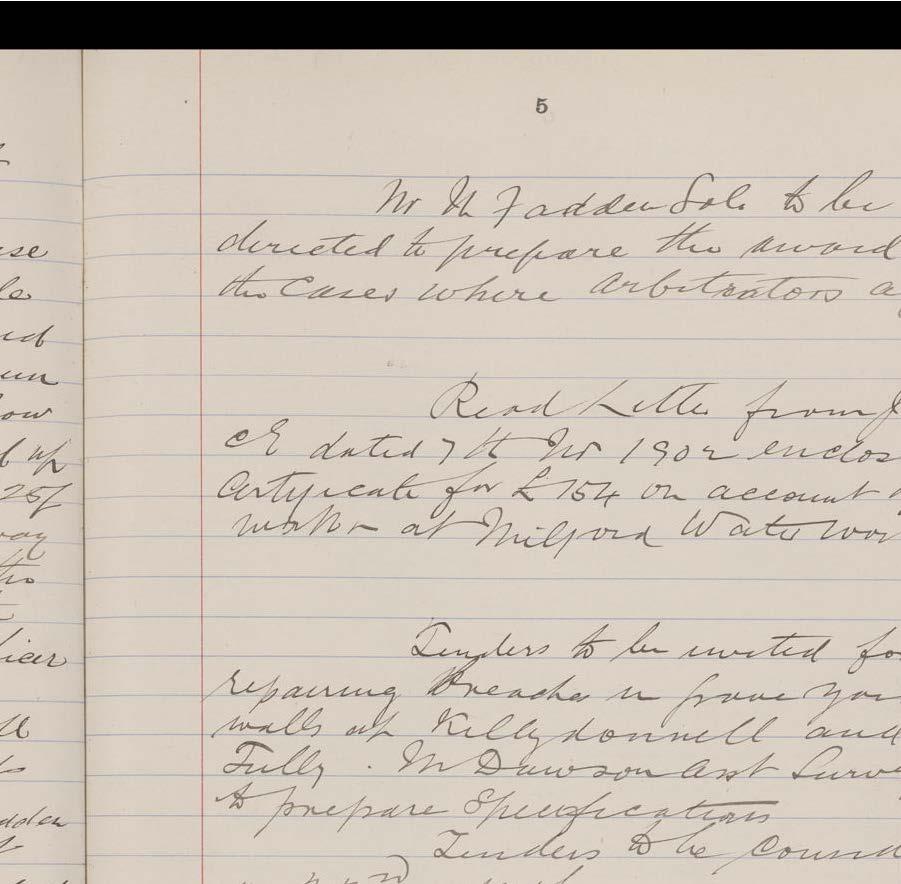 5
Mr McFadden Solr to be
directed to prepare the award
the Cases where arbitrators a
Read Letter from J
CE dated 7th Nov 1902 enclos
Certificate for £154 on account
work at Milford Water wor
Tenders to be invited fo
repairing Breaches in grave yar
walls at Killydonnell and
Tully. Mr Dawson Asst Surve
to prepare Specifications
Tenders to be